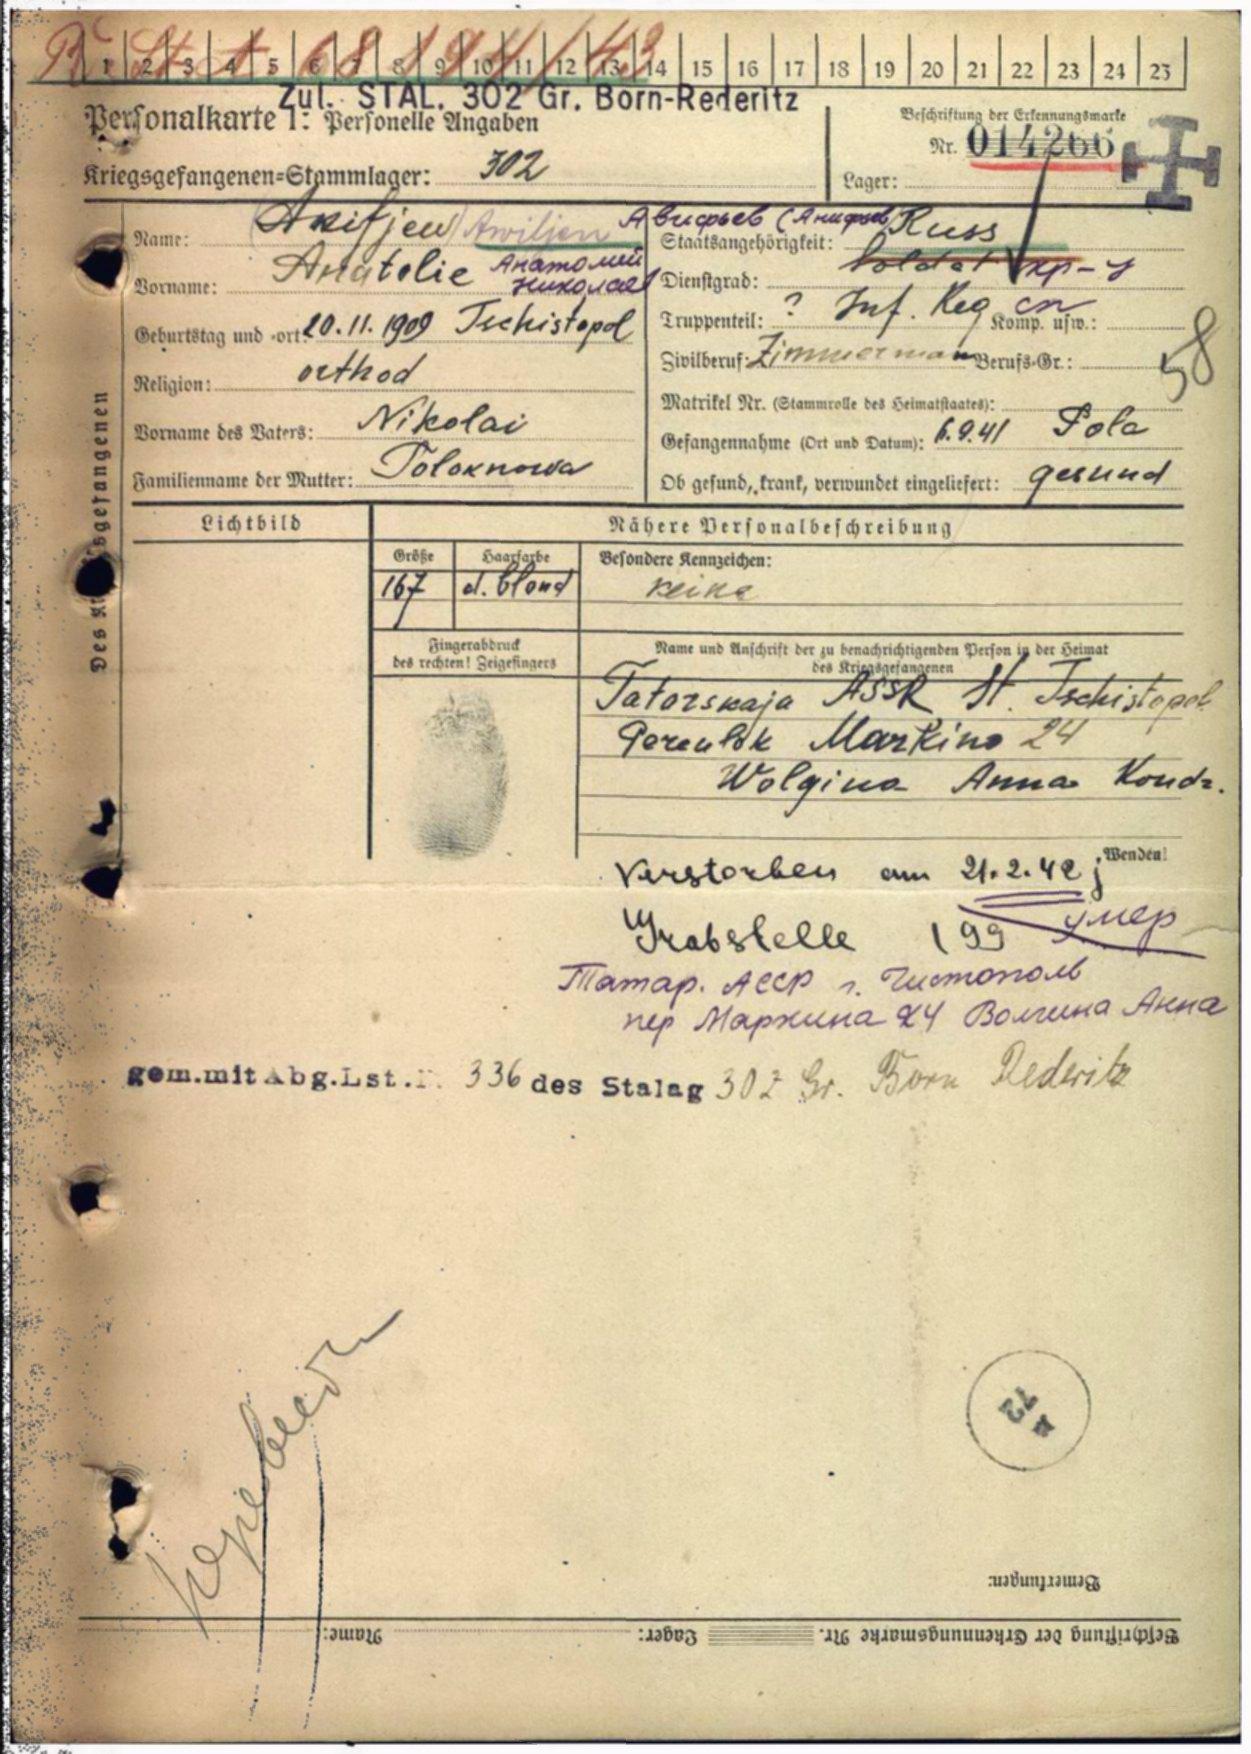 R. St. A. 68 194/43
1 2 3 4 5 6 7 8 9 10 11 12 13 14 15 16 17 18 19 20 21 22 23 24 25
Zul. STAL. 302 Gr. Born-Rederitz
Personalkarte I: Personelle Angaben
Beschriftung der Erkennungsmarke
Nr. 014266
Kriegsgefangenen-Stammlager: 302
Lager:
Des Kriegsgefangenen
Name: (Akifjew) Awiljen Авифьев (Анифьев)
Staatsangehörigkeit: Russ
Vorname: Anatolie Анатолий Николаев
Dienstgrad: Soldat кр-ц
Geburtstag und -ort: 20.11.1909 Tschistopol
Truppenteil: ? Inf. Reg сп Komp. usw.:
Religion: orthod
Zivilberuf: Zimmerman Berufs-Gr.: 58
Matrikel Nr. (Stammrolle des Heimatstaates):
Vorname des Vaters: Nikolai
Gefangennahme (Ort und Datum): 6.9.41 Pola
Familienname der Mutter: Toloknowa
Ob gesund, krank, verwundet eingeliefert: gesund
Lichtbild
Nähere Personalbeschreibung
Größe Haarfarbe Besondere Kennzeichen:
167 d. blond keine
Fingerabdruck
des rechten! Zeigefingers
Name und Anschrift der zu benachrichtigenden Person in der Heimat
des Kriegsgefangenen
Tatorskaja ASSR St. Tschistopol
Pereulok Markino 24
Wolgina Anna Kondr.
Wenden!
Verstorben am 21.2.42
Grabstelle 199 умер
Татар. АССР г. Чистополь
пер Маркина 24 Волгина Анна
gem.mit Abg.Lst. 336 des Stalag 302 Gr. Born Rederitz
72
Bemerkungen:
Beschriftung der Erkennungsmarke Nr. Lager: Name: